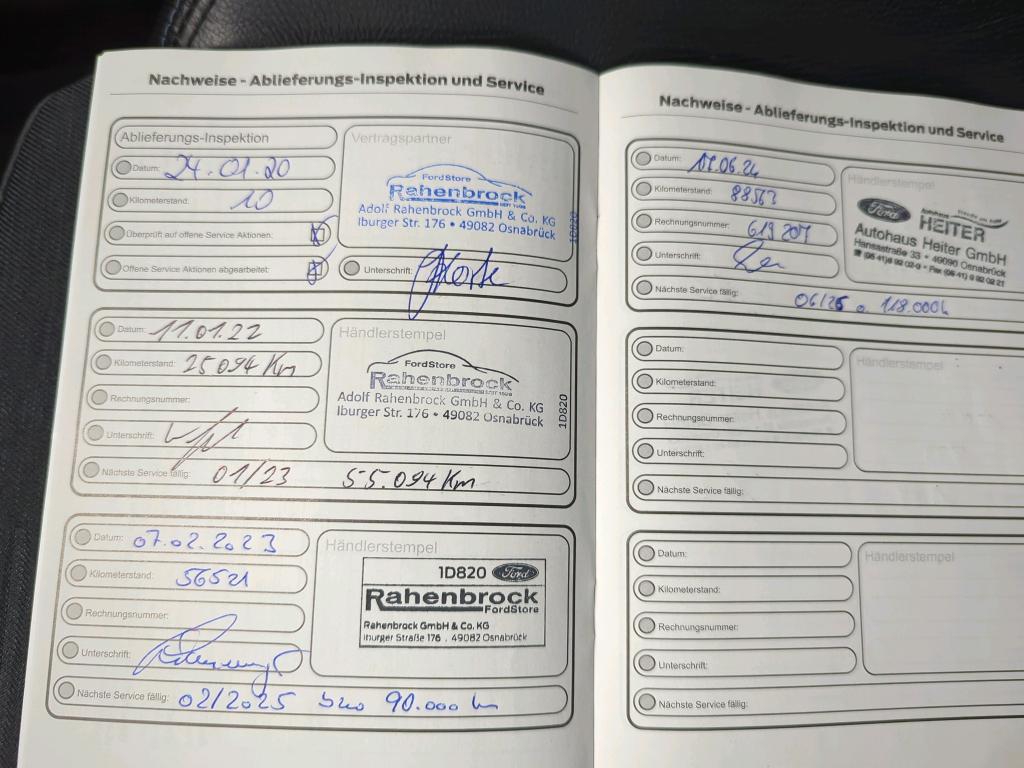 Nachweise - Ablieferungs-Inspektion und Service
Ablieferungs-Inspektion
Datum: 24.01.20
Kilometerstand: 10
Überprüft auf offene Service Aktionen:
Offene Service Aktionen abgearbeitet:
Vertragspartner
FordStore
Rahenbrock
Adolf Rahenbrock GmbH & Co. KG
Iburger Str. 176 • 49082 Osnabrück
1D820
Unterschrift:
Datum: 11.01.22
Kilometerstand: 25094 Km
Rechnungsnummer:
Unterschrift:
Nächste Service fällig: 01/23 55.094 Km
Händlerstempel
FordStore
Rahenbrock
Adolf Rahenbrock GmbH & Co. KG
Iburger Str. 176 • 49082 Osnabrück
1D820
Datum: 07.02.2023
Kilometerstand: 56521
Rechnungsnummer:
Unterschrift:
Nächste Service fällig: 02/2025 90.000
Händlerstempel
1D820 Ford
Rahenbrock
FordStore
Rahenbrock GmbH & Co. KG
Iburger Straße 176 . 49082 Osnabrück
Nachweise - Ablieferungs-Inspektion und Service
Datum: .06.24
Kilometerstand: 88563
Rechnungsnummer: 619 207
Unterschrift:
Nächste Service fällig: 118.000
Händlerstempel
Ford
HEITER
Autohaus Heiter GmbH
Hansastraße 33 • 49090 Osnabrück
Datum:
Kilometerstand:
Rechnungsnummer:
Unterschrift:
Nächste Service fällig:
Händlerstempel
Datum:
Kilometerstand:
Rechnungsnummer:
Unterschrift:
Nächste Service fällig:
Händlerstempel